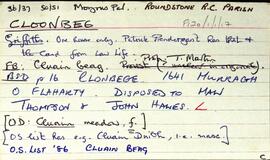 36/37 50/51 Moyrus Pal. ROUNDSTONE R.C. PARISH
CLOONBEG
Griffiths. One house only. Patrick Prendergast Res. that &
Card from Law Life.
FB: Cluain beag. Prop T. Martin
BSD p16 CLONBEGE. 1641 MURRAGH
O FLAHARTY. DISPOSED TO MAN
THOMPSON & JOHN HAWES. L
[OD: Cluain meadow, f.]
[OS list Res. e.g. Cluain Dnith, i.e. masc]
O.S. LIST '86 CLUAIN BEAG